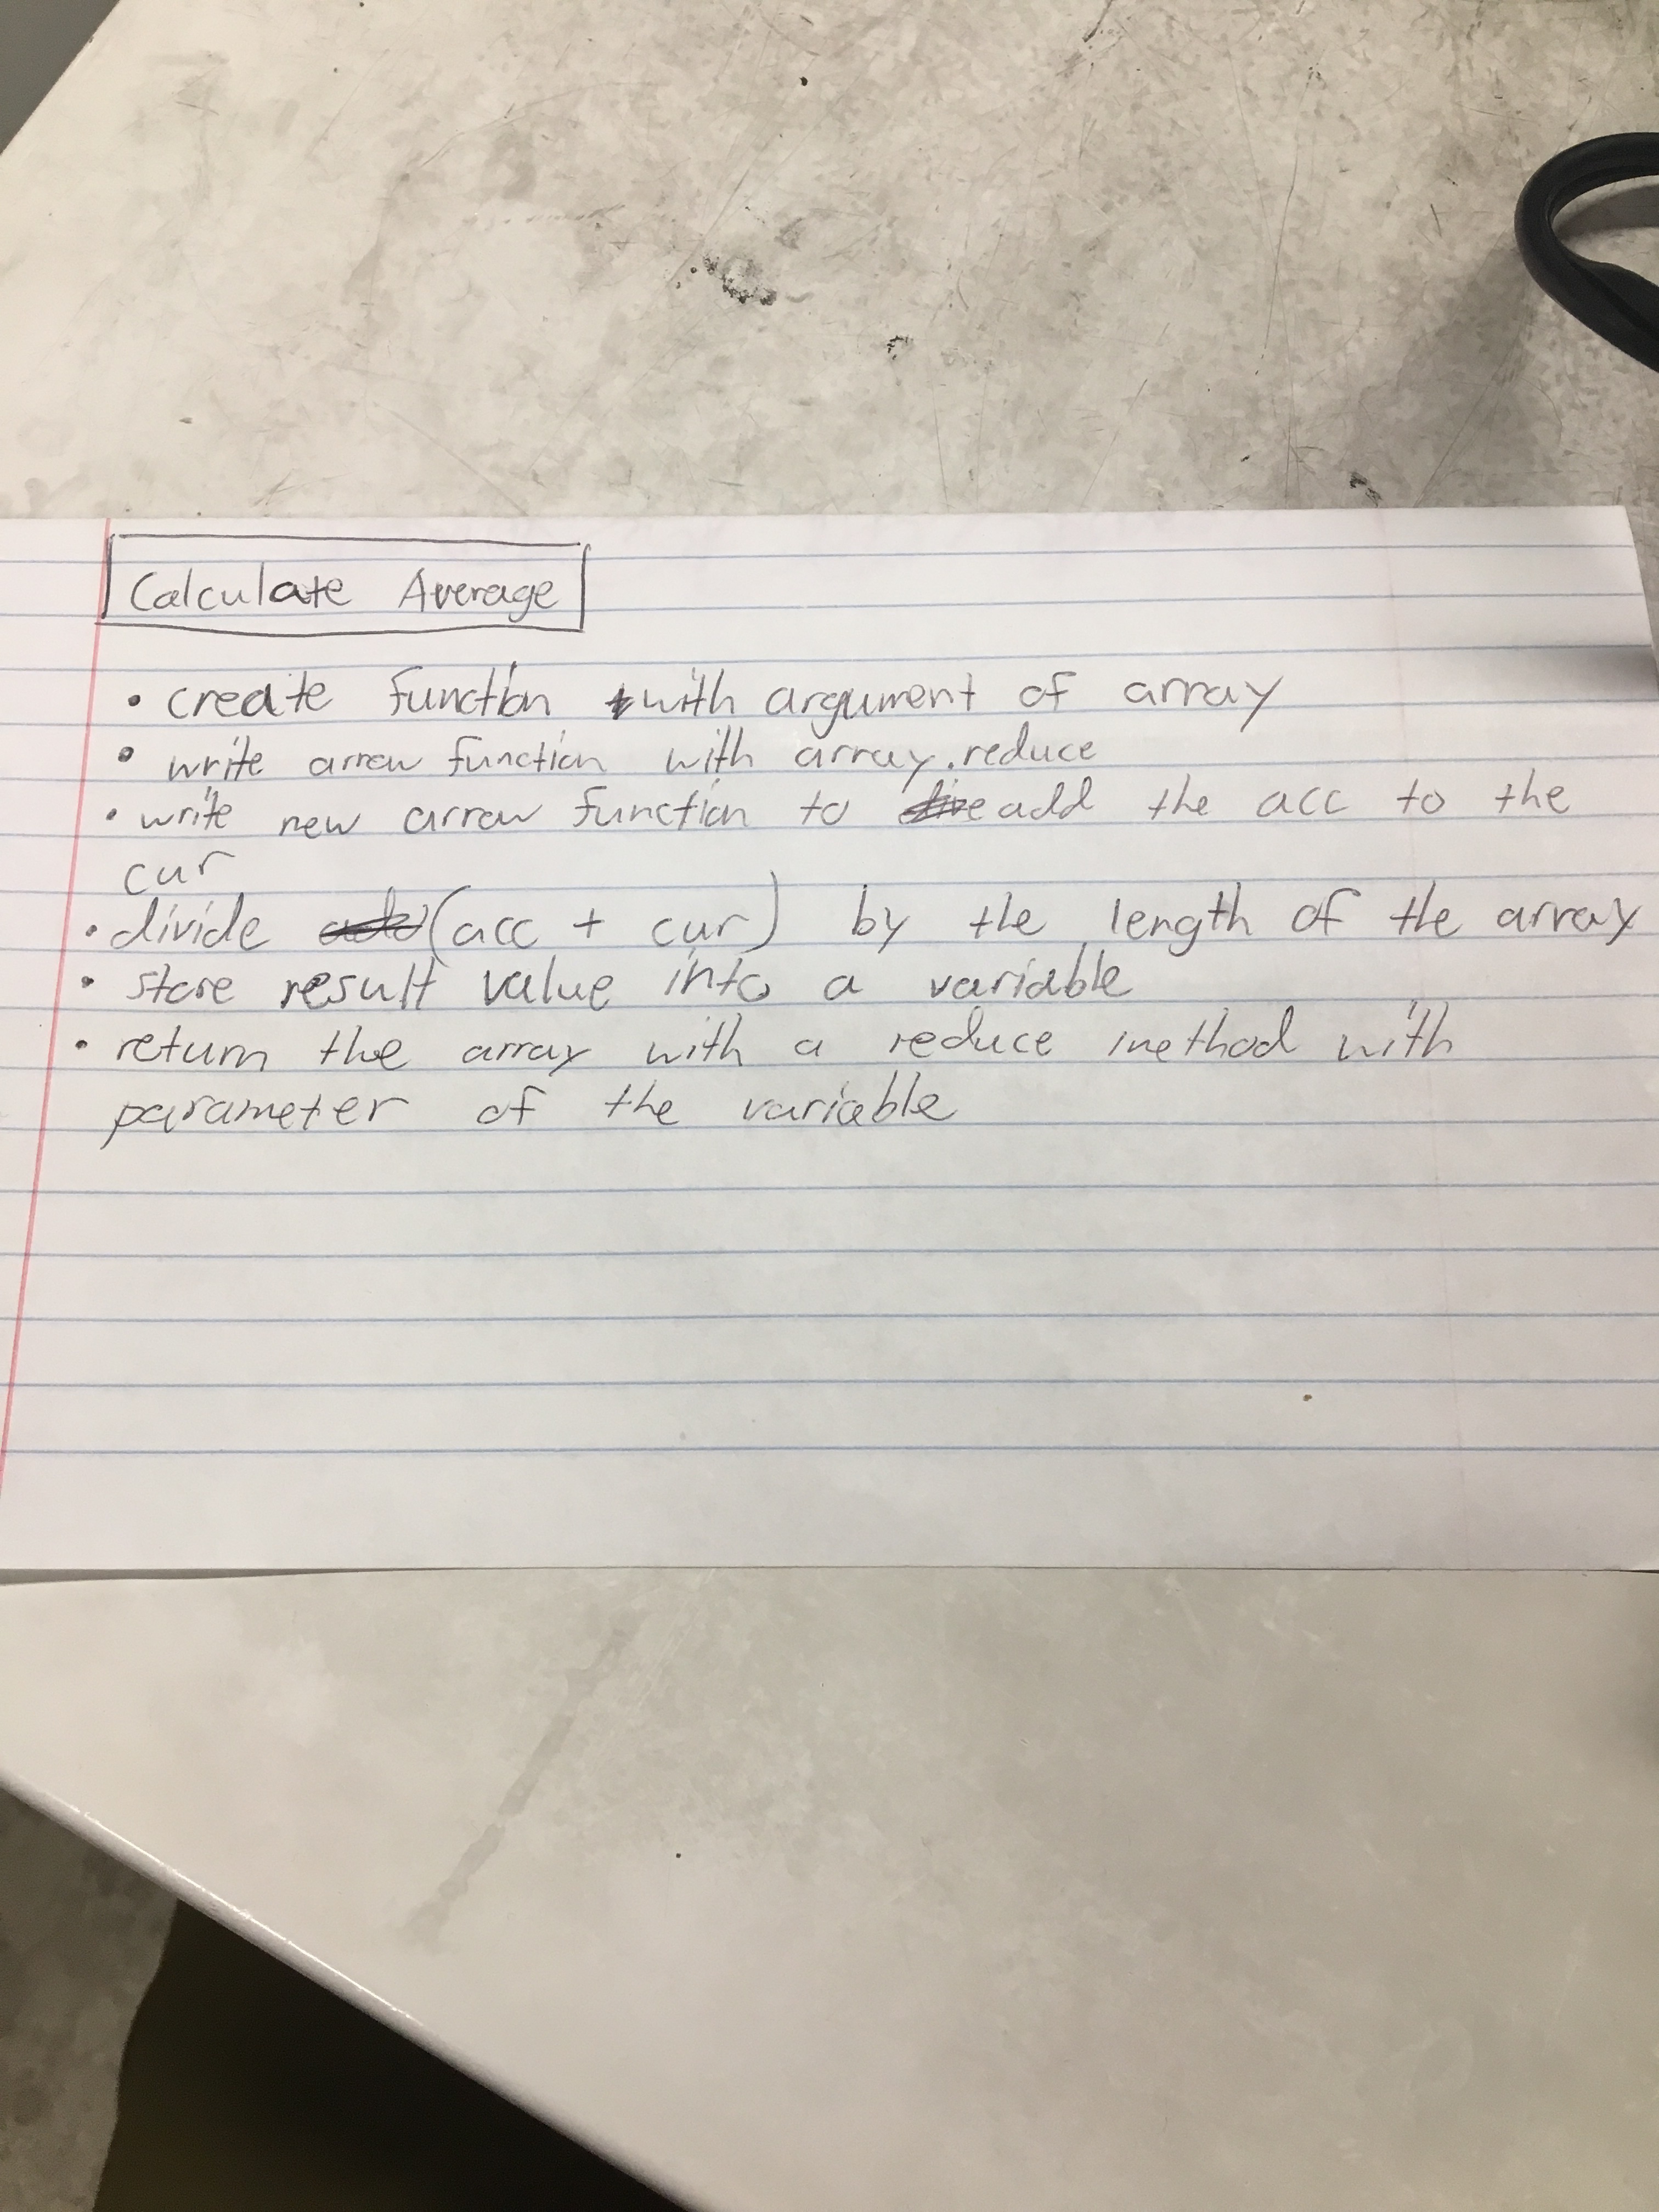 Calculate Average
• create function with argument of array
• write arrow function with array.reduce
• write new arrow function to add the acc to the
cur
• divide (acc + cur) by the length of the array
• store result value into a variable
• return the array with a reduce method with
parameter of the variable